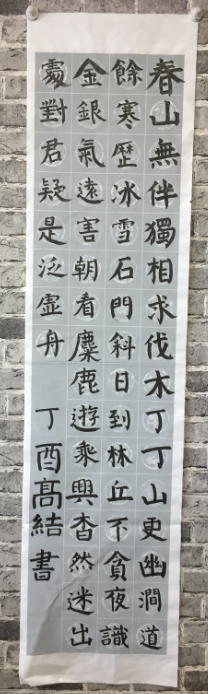 春山無伴獨相求伐木丁丁山更幽澗道
餘寒歷冰雪石門斜日到林丘不貪夜識
金銀氣遠害朝看麋鹿遊乘興杳然迷出
處對君疑是泛虛舟 丁酉髙結書